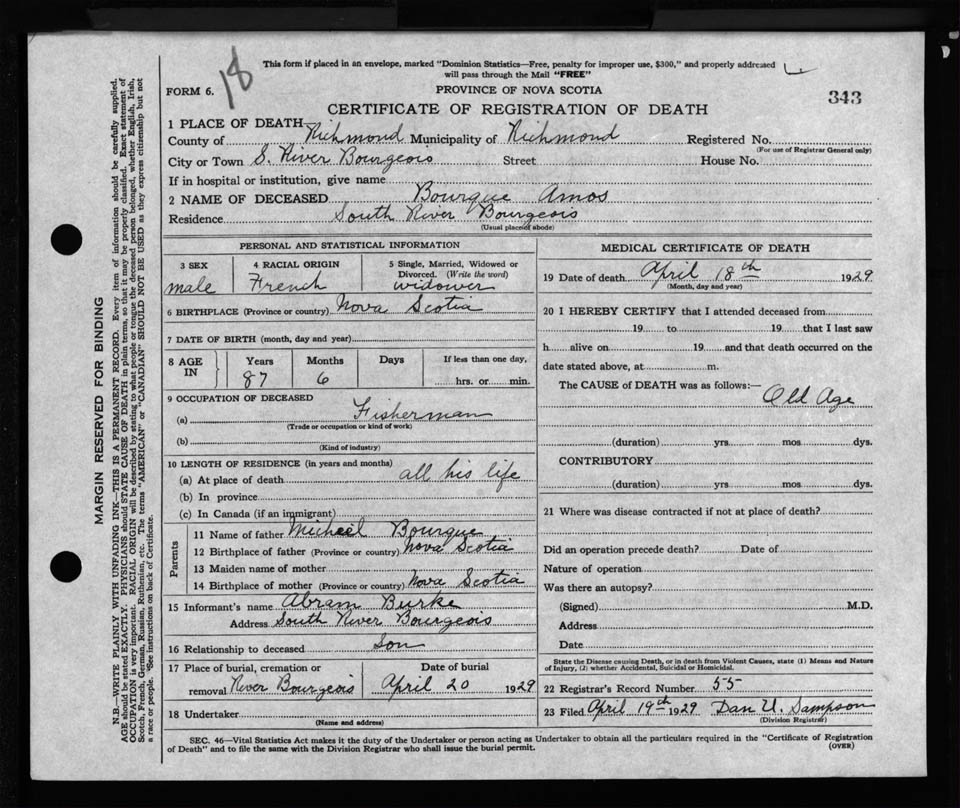 This form if placed in an envelope, marked "Dominion Statistics—Free, penalty for improper use, $300," and properly addressed
will pass through the Mail "FREE"
18
FORM 6.
PROVINCE OF NOVA SCOTIA
343
CERTIFICATE OF REGISTRATION OF DEATH
1 PLACE OF DEATH
County of Richmond Municipality of Richmond Registered No.
(For use of Registrar General only)
City or Town S. River Bourgeois Street House No.
If in hospital or institution, give name
2 NAME OF DECEASED Bourque Amos
Residence South River Bourgeois
(Usual place of abode)
PERSONAL AND STATISTICAL INFORMATION
3 SEX
male
4 RACIAL ORIGIN
French
5 Single, Married, Widowed or
Divorced. (Write the word)
widower
6 BIRTHPLACE (Province or country) Nova Scotia
7 DATE OF BIRTH (month, day and year)
8 AGE IN
Years Months Days If less than one day,
87 6 hrs. or min.
9 OCCUPATION OF DECEASED
(a) Fisherman
(Trade or occupation or kind of work)
(b)
(Kind of industry)
10 LENGTH OF RESIDENCE (in years and months)
(a) At place of death all his life
(b) In province
(c) In Canada (if an immigrant)
Parents
11 Name of father Micheal Bourque
12 Birthplace of father (Province or country) Nova Scotia
13 Maiden name of mother
14 Birthplace of mother (Province or country) Nova Scotia
15 Informant's name Abram Burke
Address South River Bourgeois
16 Relationship to deceased Son
17 Place of burial, cremation or Date of burial
removal River Bourgeois April 20 1929
18 Undertaker
(Name and address)
MEDICAL CERTIFICATE OF DEATH
19 Date of death April 18th 1929
(Month, day and year)
20 I HEREBY CERTIFY that I attended deceased from
19 to 19 that I last saw
h alive on 19 and that death occurred on the
date stated above, at m.
The CAUSE of DEATH was as follows:—
Old Age
(duration) yrs mos dys.
CONTRIBUTORY
(duration) yrs mos dys.
21 Where was disease contracted if not at place of death?
Did an operation precede death? Date of
Nature of operation
Was there an autopsy?
(Signed) M.D.
Address
Date
State the Disease causing Death, or in death from Violent Causes, state (1) Means and Nature
of Injury, (2) whether Accidental, Suicidal or Homicidal.
22 Registrar's Record Number 55
23 Filed April 19th 1929 Dan U. Sampson
(Division Registrar)
SEC. 46—Vital Statistics Act makes it the duty of the Undertaker or person acting as Undertaker to obtain all the particulars required in the "Certificate of Registration
of Death" and to file the same with the Division Registrar who shall issue the burial permit.
(OVER)
MARGIN RESERVED FOR BINDING
N.B.—WRITE PLAINLY, WITH UNFADING INK—THIS IS A PERMANENT RECORD. Every item of information should be carefully supplied.
AGE should be stated EXACTLY. PHYSICIANS should STATE CAUSE OF DEATH in plain terms, so that it may be properly classified. Exact statement of
OCCUPATION is very important. RACIAL ORIGIN will be described by stating to what people or tongue the deceased person belonged, whether English, Irish,
Scotch, French, German, Russian, Ruthenian, etc. The terms "AMERICAN" or "CANADIAN" SHOULD NOT BE USED as they express citizenship but not
a race or people. *See instructions on back of Certificate.